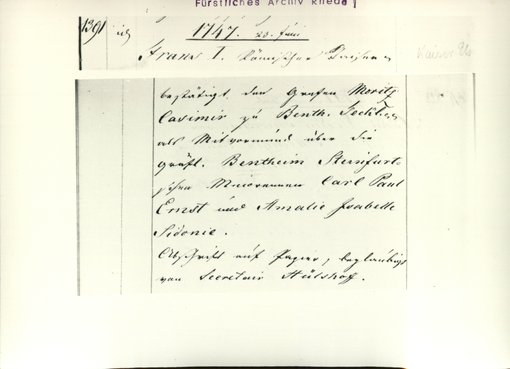 Fürstliches Archiv Rheda
1391
1747. 20. Juni
Franz I. Römischer Kaiser
bestätigt den Grafen Moritz
Casimir zu Benth. Teckl.
als Mitvormund über die
gräfl. Bentheim Steinfurt-
schen Minorennen Carl Paul
Ernst und Amalie Isabelle
Sidonie.
Abschrift auf Papier, beglaubigt
von Secretair Hülshoff.